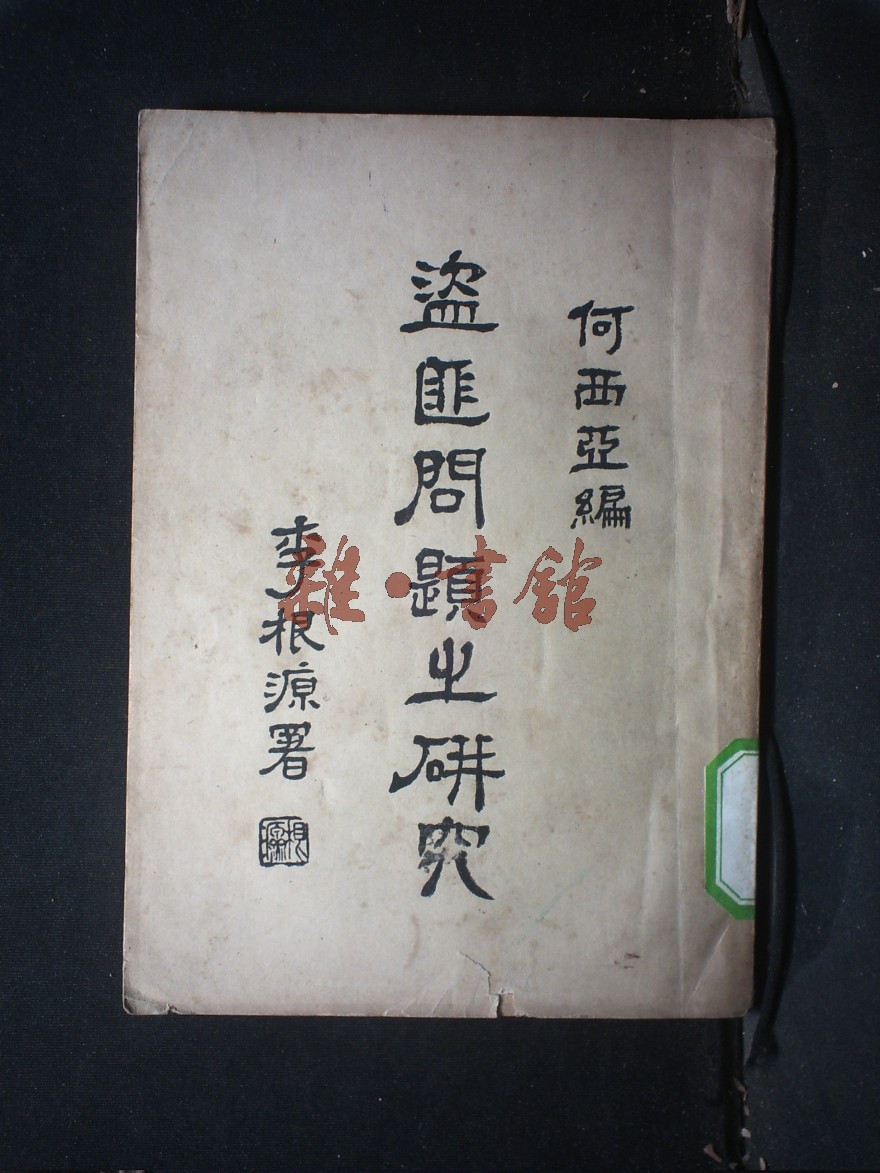 何西亞編
盜匪問題之研究
李根源署
根源
雜·書館